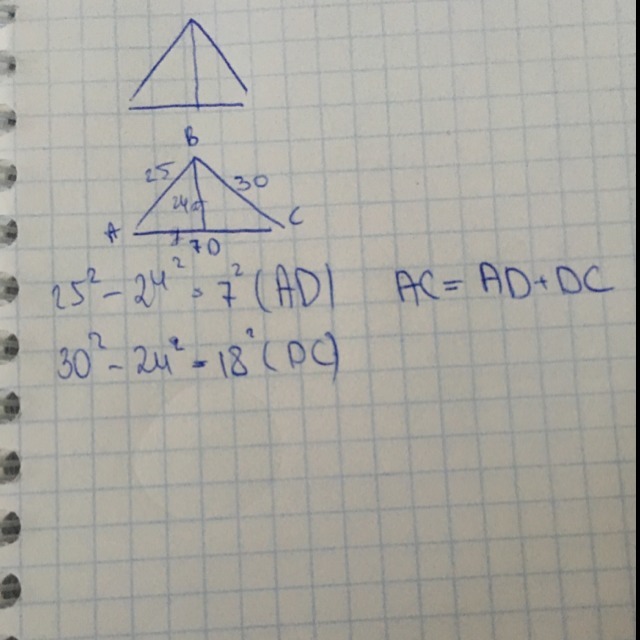 B
25 30
24
A C
7 D
25² - 24² = 7² (AD) AC = AD + DC
30² - 24² = 18² (DC)